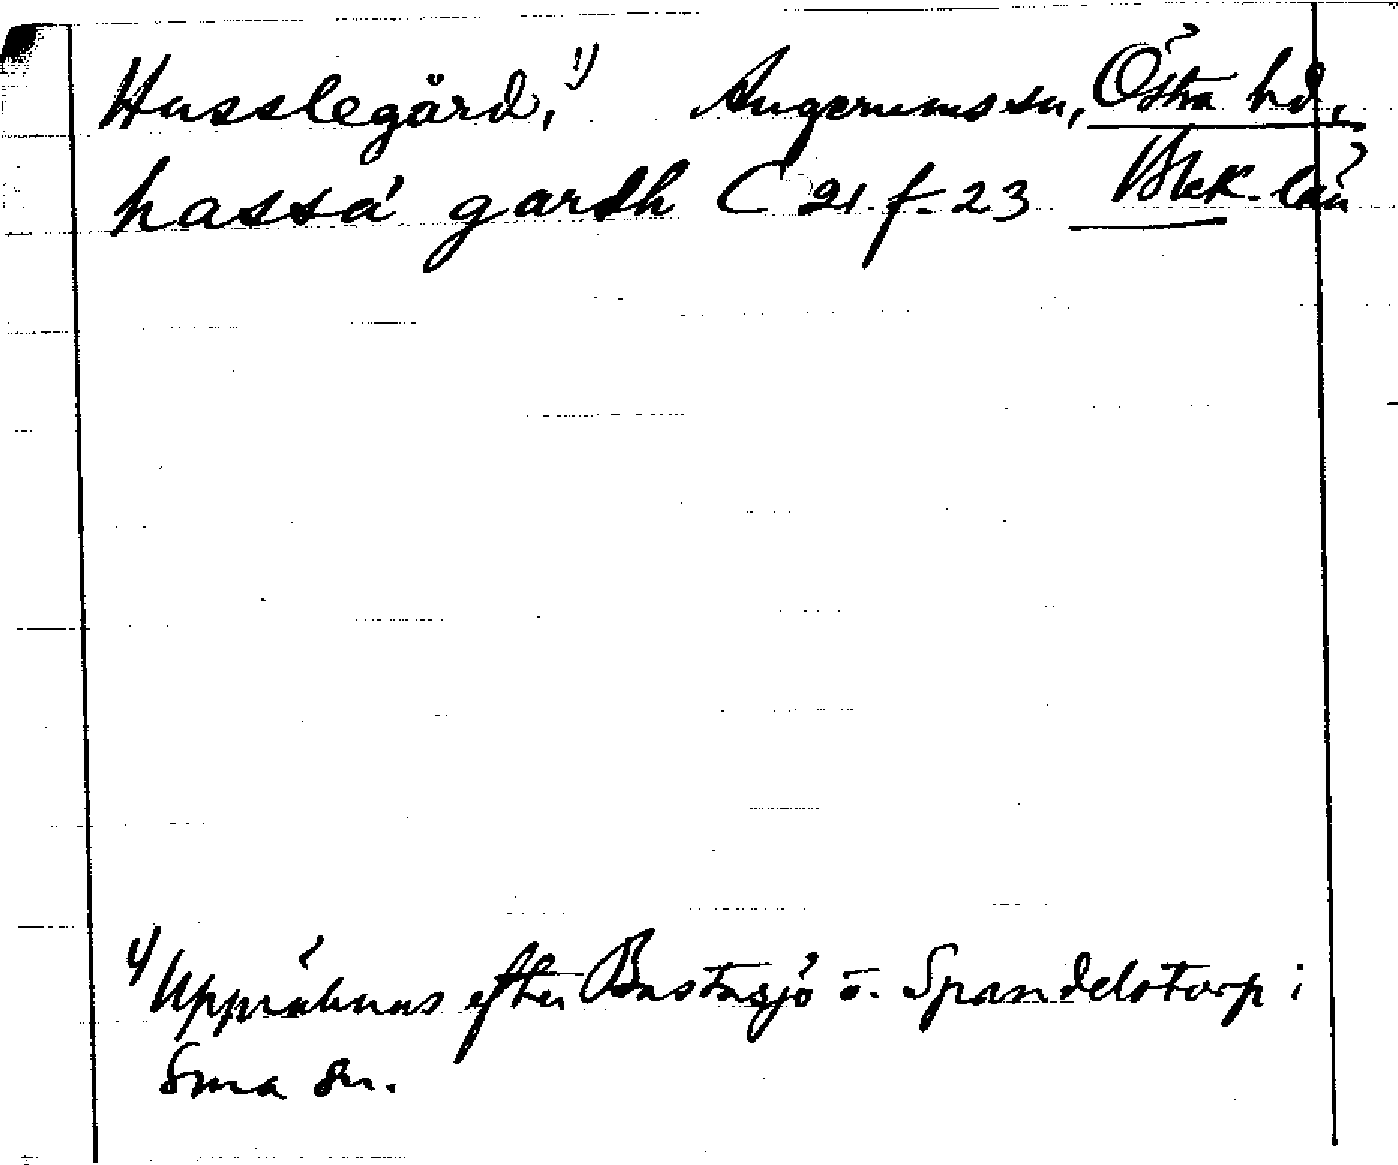 Husslegärd,¹⁾ Augerums sn, Östra hd,
hassá gardh C 21 f. 23 Blek. län
¹⁾ Uppräknas efter Bastasjö o. Spandelstorp i
sma sn.